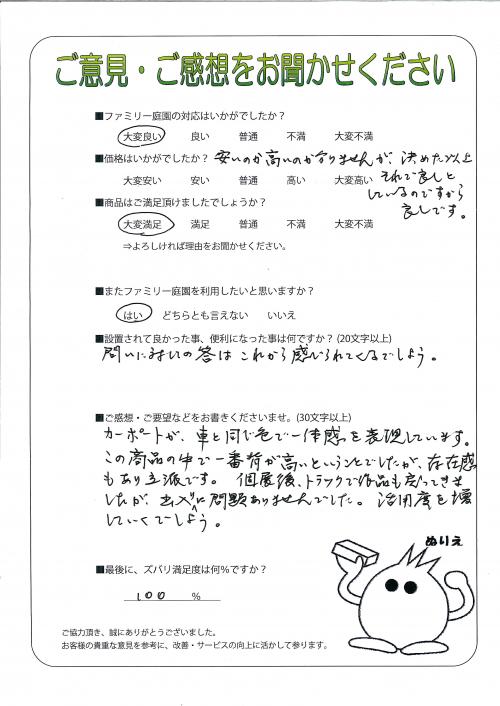 ご意見・ご感想をお聞かせください
■ファミリー庭園の対応はいかがでしたか？
大変良い 良い 普通 不満 大変不満
■価格はいかがでしたか？ 安いのか高いのか分りませんが、決めた以上
それで良しと
しているのですから
良しです。
大変安い 安い 普通 高い 大変高い
■商品はご満足頂けましたでしょうか？
大変満足 満足 普通 不満 大変不満
⇒よろしければ理由をお聞かせください。
■またファミリー庭園を利用したいと思いますか？
はい どちらとも言えない いいえ
■設置されて良かった事、便利になった事は何ですか？(20文字以上)
問いに対しての答はこれから感じられてくるでしょう。
■ご感想・ご要望などをお書きくださいませ。(30文字以上)
カーポートが、車と同じ色で一体感を表現しています。
この商品の中で一番背が高いということでしたが、存在感
もあり立派です。 個展後、トラックで作品も戻ってきま
したが、出入りに問題ありませんでした。 活用度を増
していくでしょう。
ぬりえ
■最後に、ズバリ満足度は何％ですか？
100 %
ご協力頂き、誠にありがとうございました。
お客様の貴重な意見を参考に、改善・サービスの向上に活かして参ります。